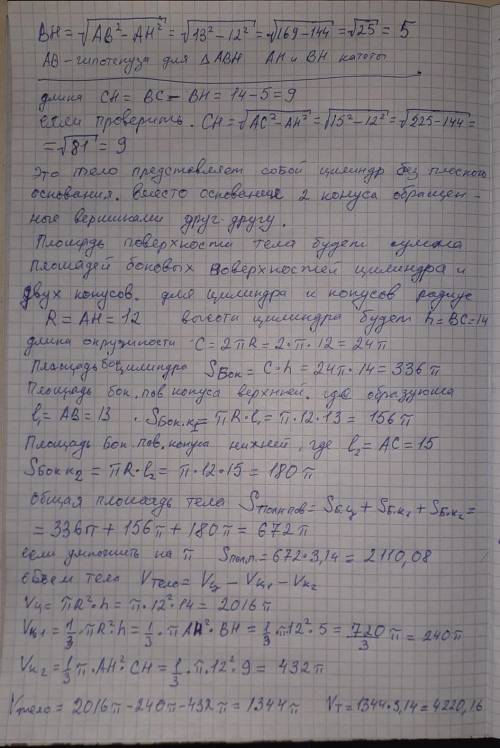 BH = √(AB² - AH²) = √(13² - 12²) = √(169 - 144) = √25 = 5
AB - гипотенуза для ΔABH AH и BH катеты
длина CH = BC - BH = 14 - 5 = 9
если проверить. CH = √(AC² - AH²) = √(15² - 12²) = √(225 - 144) =
= √81 = 9
Это тело представляет собой цилиндр без плоского
основания. вместо основание 2 конуса обращен-
ные вершинами друг-другу.
Площадь поверхности тела будет сумма
площадей боковых поверхностей цилиндра и
двух конусов. для цилиндра и конусов радиус
R = AH = 12 высота цилиндра будет h = BC = 14
длина окружности C = 2πR = 2·π·12 = 24π
Площадь бок цилиндра Sбок = C·h = 24π·14 = 336π
Площадь бок. пов конуса верхней. где образующа
l₁ = AB = 13. Sбок.к1 = πR·l₁ = π·12·13 = 156π
Площадь бок. пов. конуса нижней, где l₂ = AC = 15
Sбок к2 = πR·l₂ = π·12·15 = 180π
Общая площадь тела Sполн пов = Sб.ц + Sб.к1 + Sб.к2 =
= 336π + 156π + 180π = 672π
если умножить на π Sпол.п. = 672·3,14 = 2110,08
Объем тела Vтело = Vц - Vк1 - Vк2
Vц = πR²·h = π·12²·14 = 2016π
Vк1 = 1/3·πR²·h = 1/3·πAH²·BH = 1/3·π12²·5 = 720/3 π = 240π
Vк2 = 1/3 π·AH²·CH = 1/3·π·12²·9 = 432π
Vтело = 2016π - 240π - 432π = 1344π Vт = 1344·3,14 = 4220,16